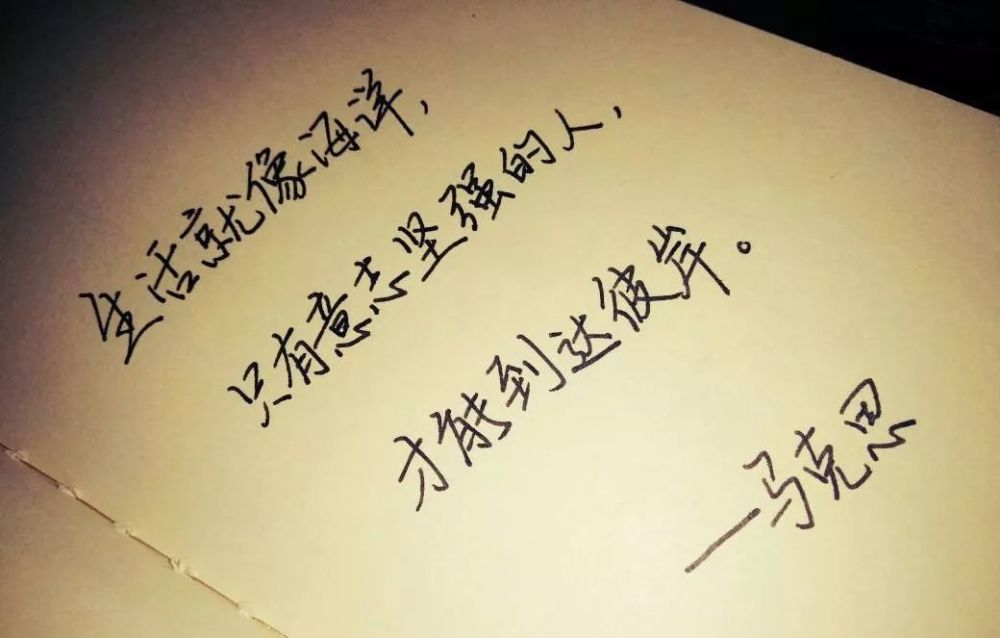 生活就像海洋,
只有意志坚强的人,
才能到达彼岸。
—马克思